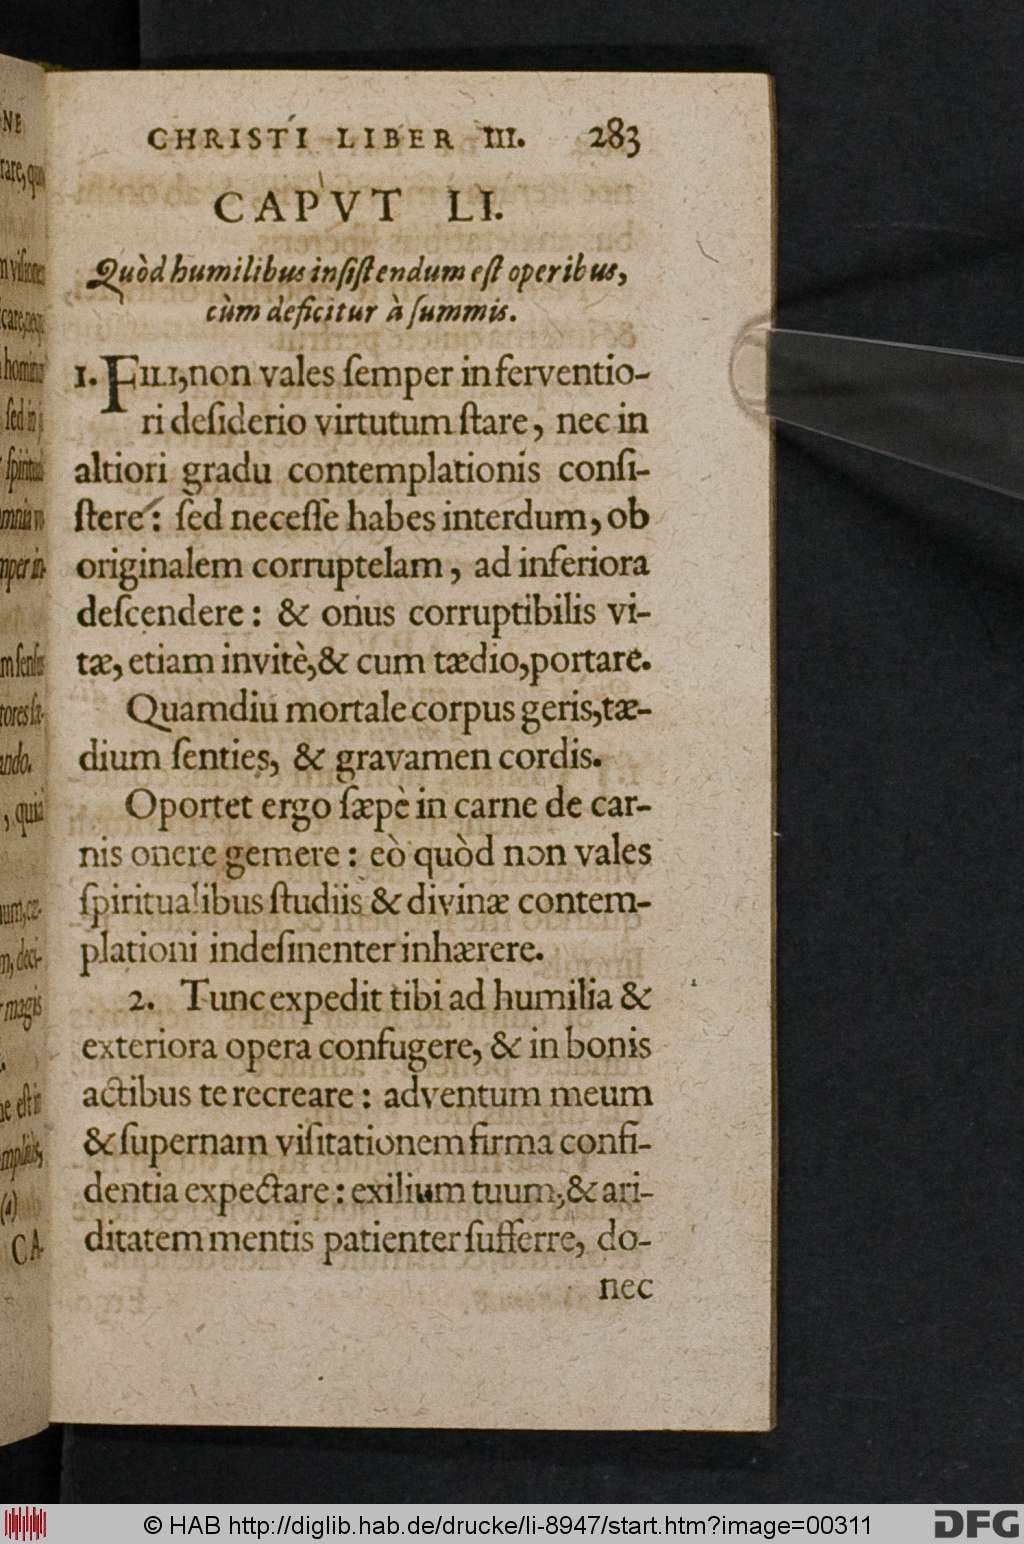 CHRISTI LIBER III. 283
CAPVT LI.
Quòd humilibus inſiſtendum eſt operibus,
cùm deficitur à ſummis.
1. FILI, non vales ſemper in ferventio-
ri deſiderio virtutum ſtare, nec in
altiori gradu contemplationis conſi-
ſtere: ſed neceſſe habes interdum, ob
originalem corruptelam, ad inferiora
deſcendere: & onus corruptibilis vi-
tæ, etiam invitè, & cum tædio, portare.
Quamdiu mortale corpus geris, tæ-
dium ſenties, & gravamen cordis.
Oportet ergo ſæpè in carne de car-
nis onere gemere: eò quòd non vales
ſpiritualibus ſtudiis & divinæ contem-
plationi indeſinenter inhærere.
2. Tunc expedit tibi ad humilia &
exteriora opera confugere, & in bonis
actibus te recreare: adventum meum
& ſupernam viſitationem firma confi-
dentia expectare: exilium tuum, & ari-
ditatem mentis patienter ſufferre, do-
nec
NE
rare, quo
m viſiones
homin
ſed in
ſpiritu
mnia
mper in-
m ſenſu
ando.
, quia
m, deci-
magis
ne eſt in
(a)
CA-
© HAB http://diglib.hab.de/drucke/li-8947/start.htm?image=00311
DFG